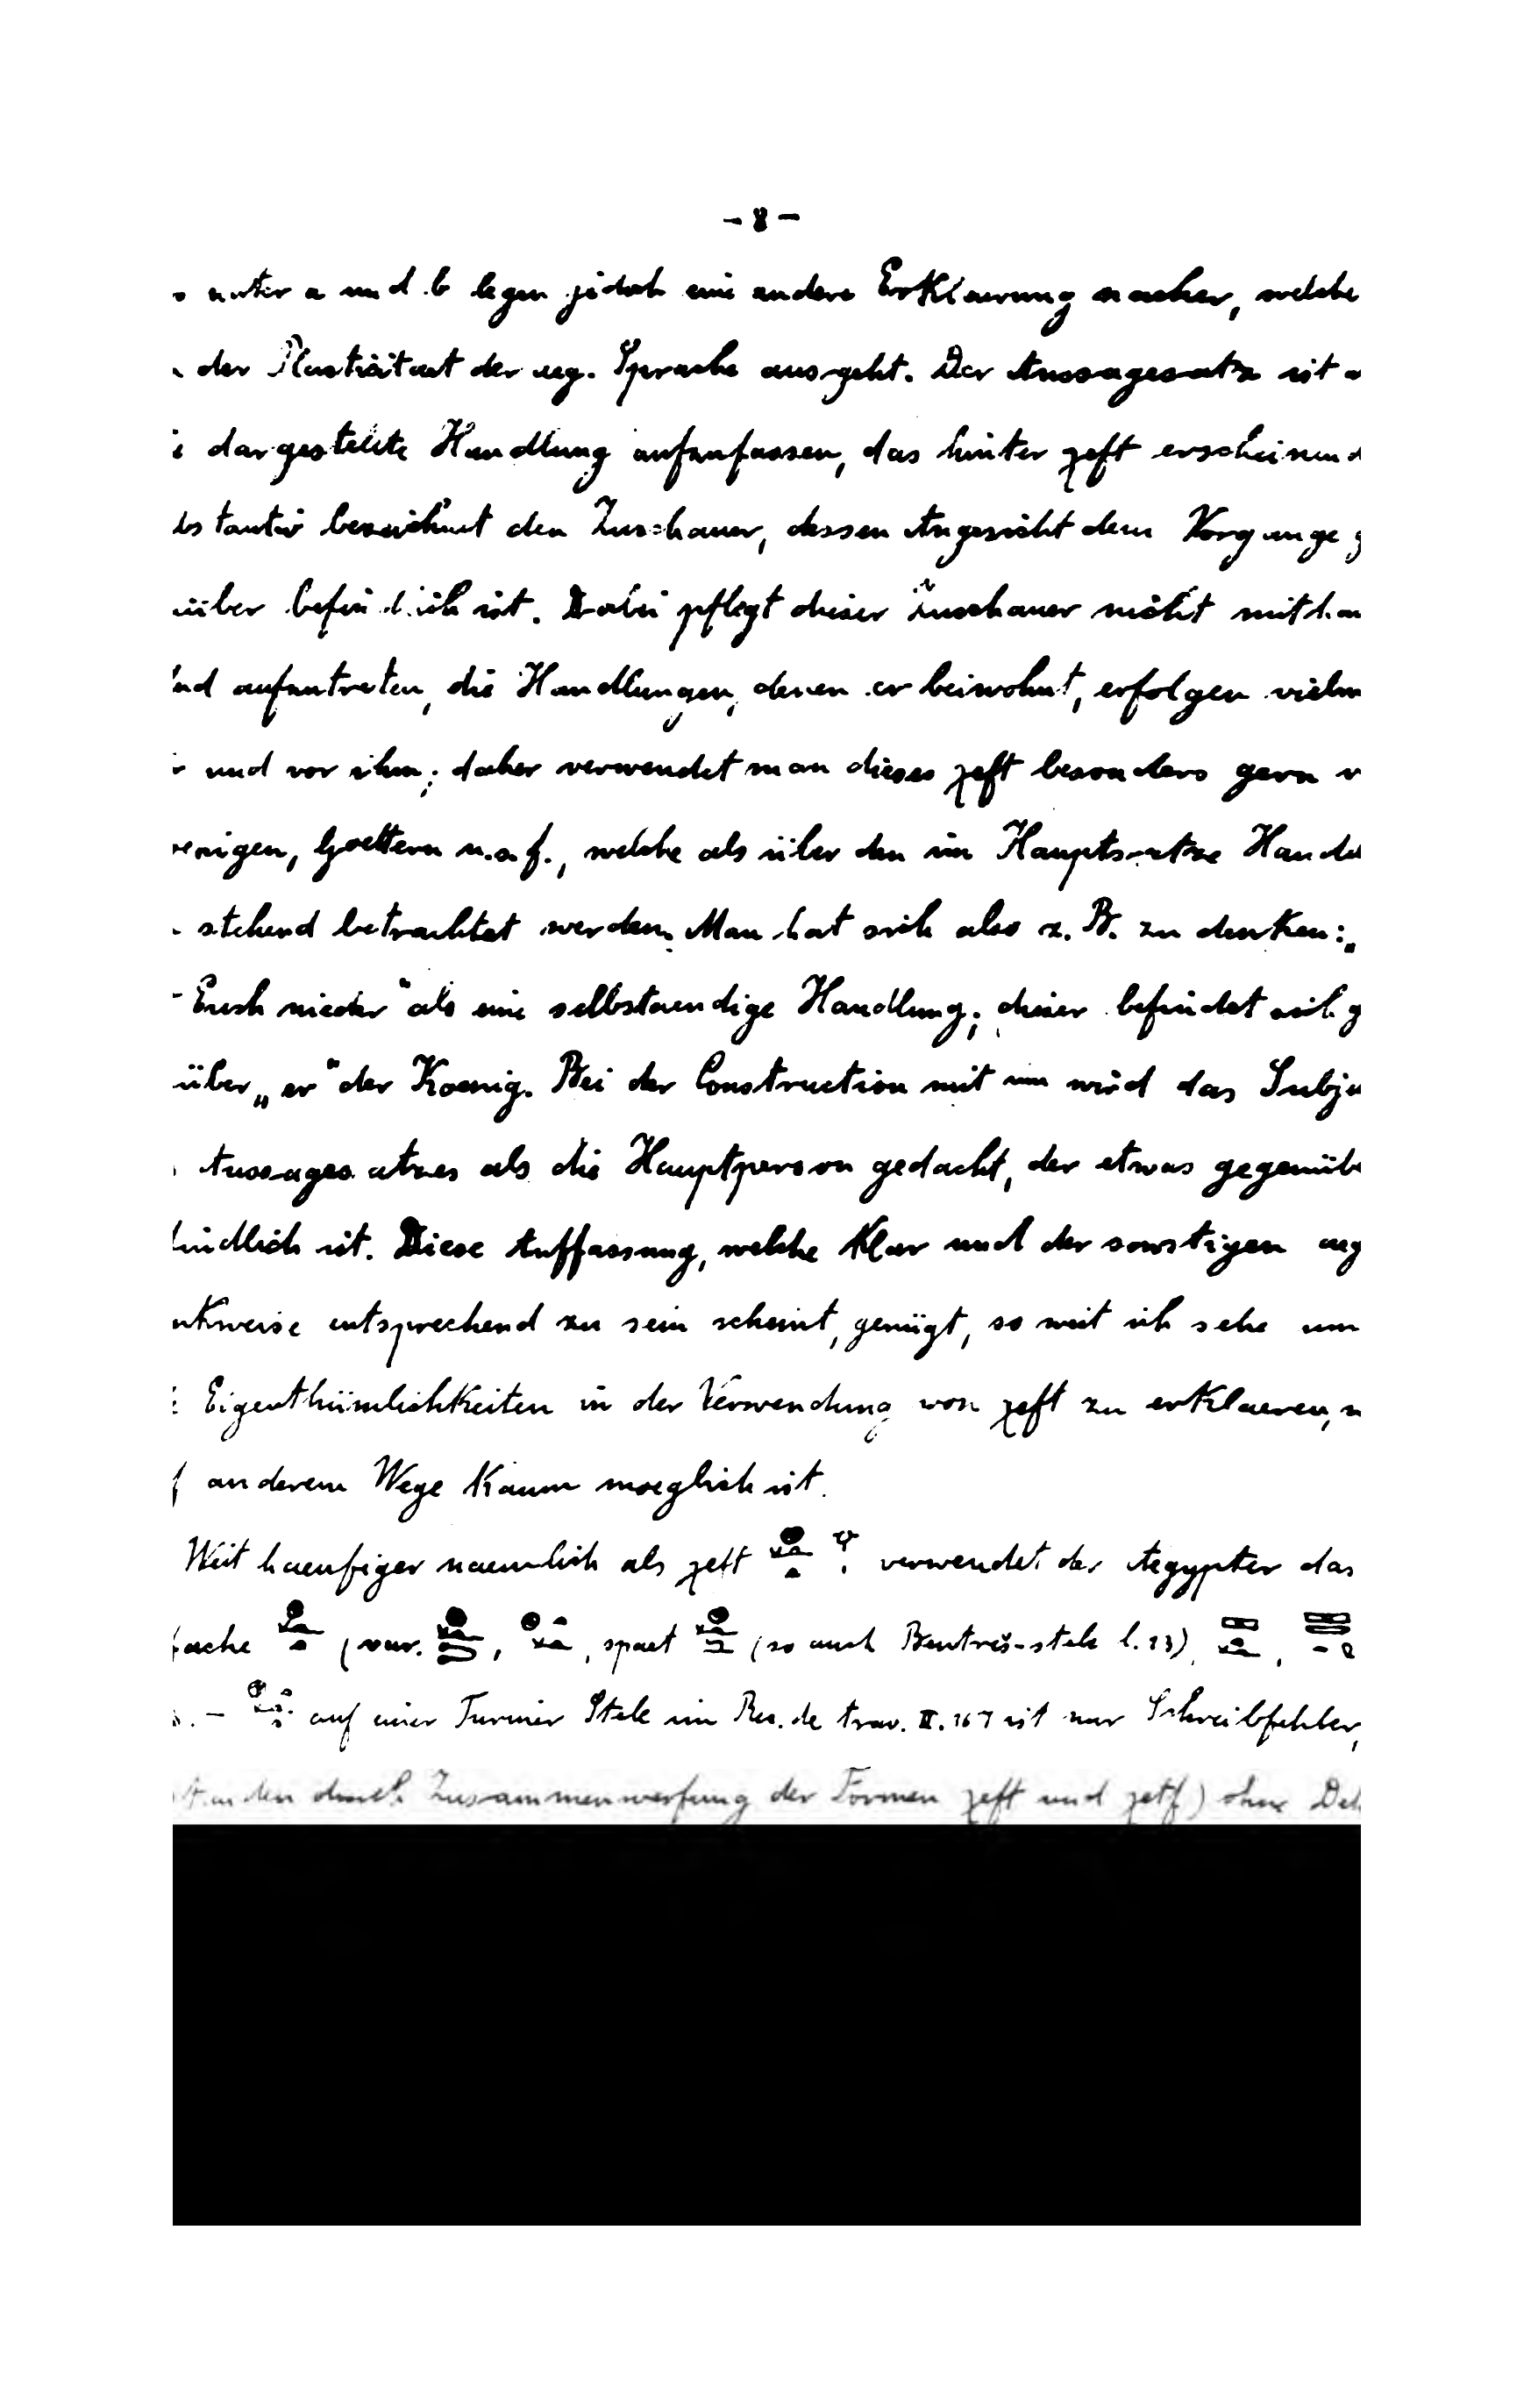 - 8 -
unter a und b legen jedoch eine andere Erklaerung naeher, welche
der Plastizitaet der aeg. Sprache ausgeht. Der Aussagesatz ist
dargestellte Handlung aufzufassen, das hinter χeft erscheinend
bstantiv bezeichnet den Zuschauer, dessen Angesicht dem Vorgange g
über befindlich ist. Dabei pflegt dieser Zuschauer nicht mithan
nd aufzutreten, die Handlungen, denen er beiwohnt, erfolgen vielm
und vor ihm; daher verwendet man dieses χeft besonders gern v
oenigen, Goettern u.s.f., welche als über den im Hauptsatze Hande
stehend betrachtet werden. Man hat sich also z. B. zu denken: „
Eush nieder“ als eine selbstaendige Handlung; dieser befindet sich g
über „er“ der Koenig. Bei der Construction mit um wird das Subje
Aussagesatzes als die Hauptperson gedacht, der etwas gegenübe
findlich ist. Diese Auffassung, welche klar und der sonstigen aeg
nkweise entsprechend zu sein scheint, genügt, so weit ich sehe um
Eigenthümlichkeiten in der Verwendung von χeft zu erklaeren,
f anderem Wege kaum moeglich ist.
Weit haeufiger naemlich als χeft verwendet der Aegypter das
fache (var. , , spaet (so auch Bentreš-stele l. 23), ,
. — auf einer Turiner Stele im Rec. de trav. II. 167 ist nur Schreibfehler,
standen durch Zusammenwerfung der Formen χeft und χetf) ohne Det